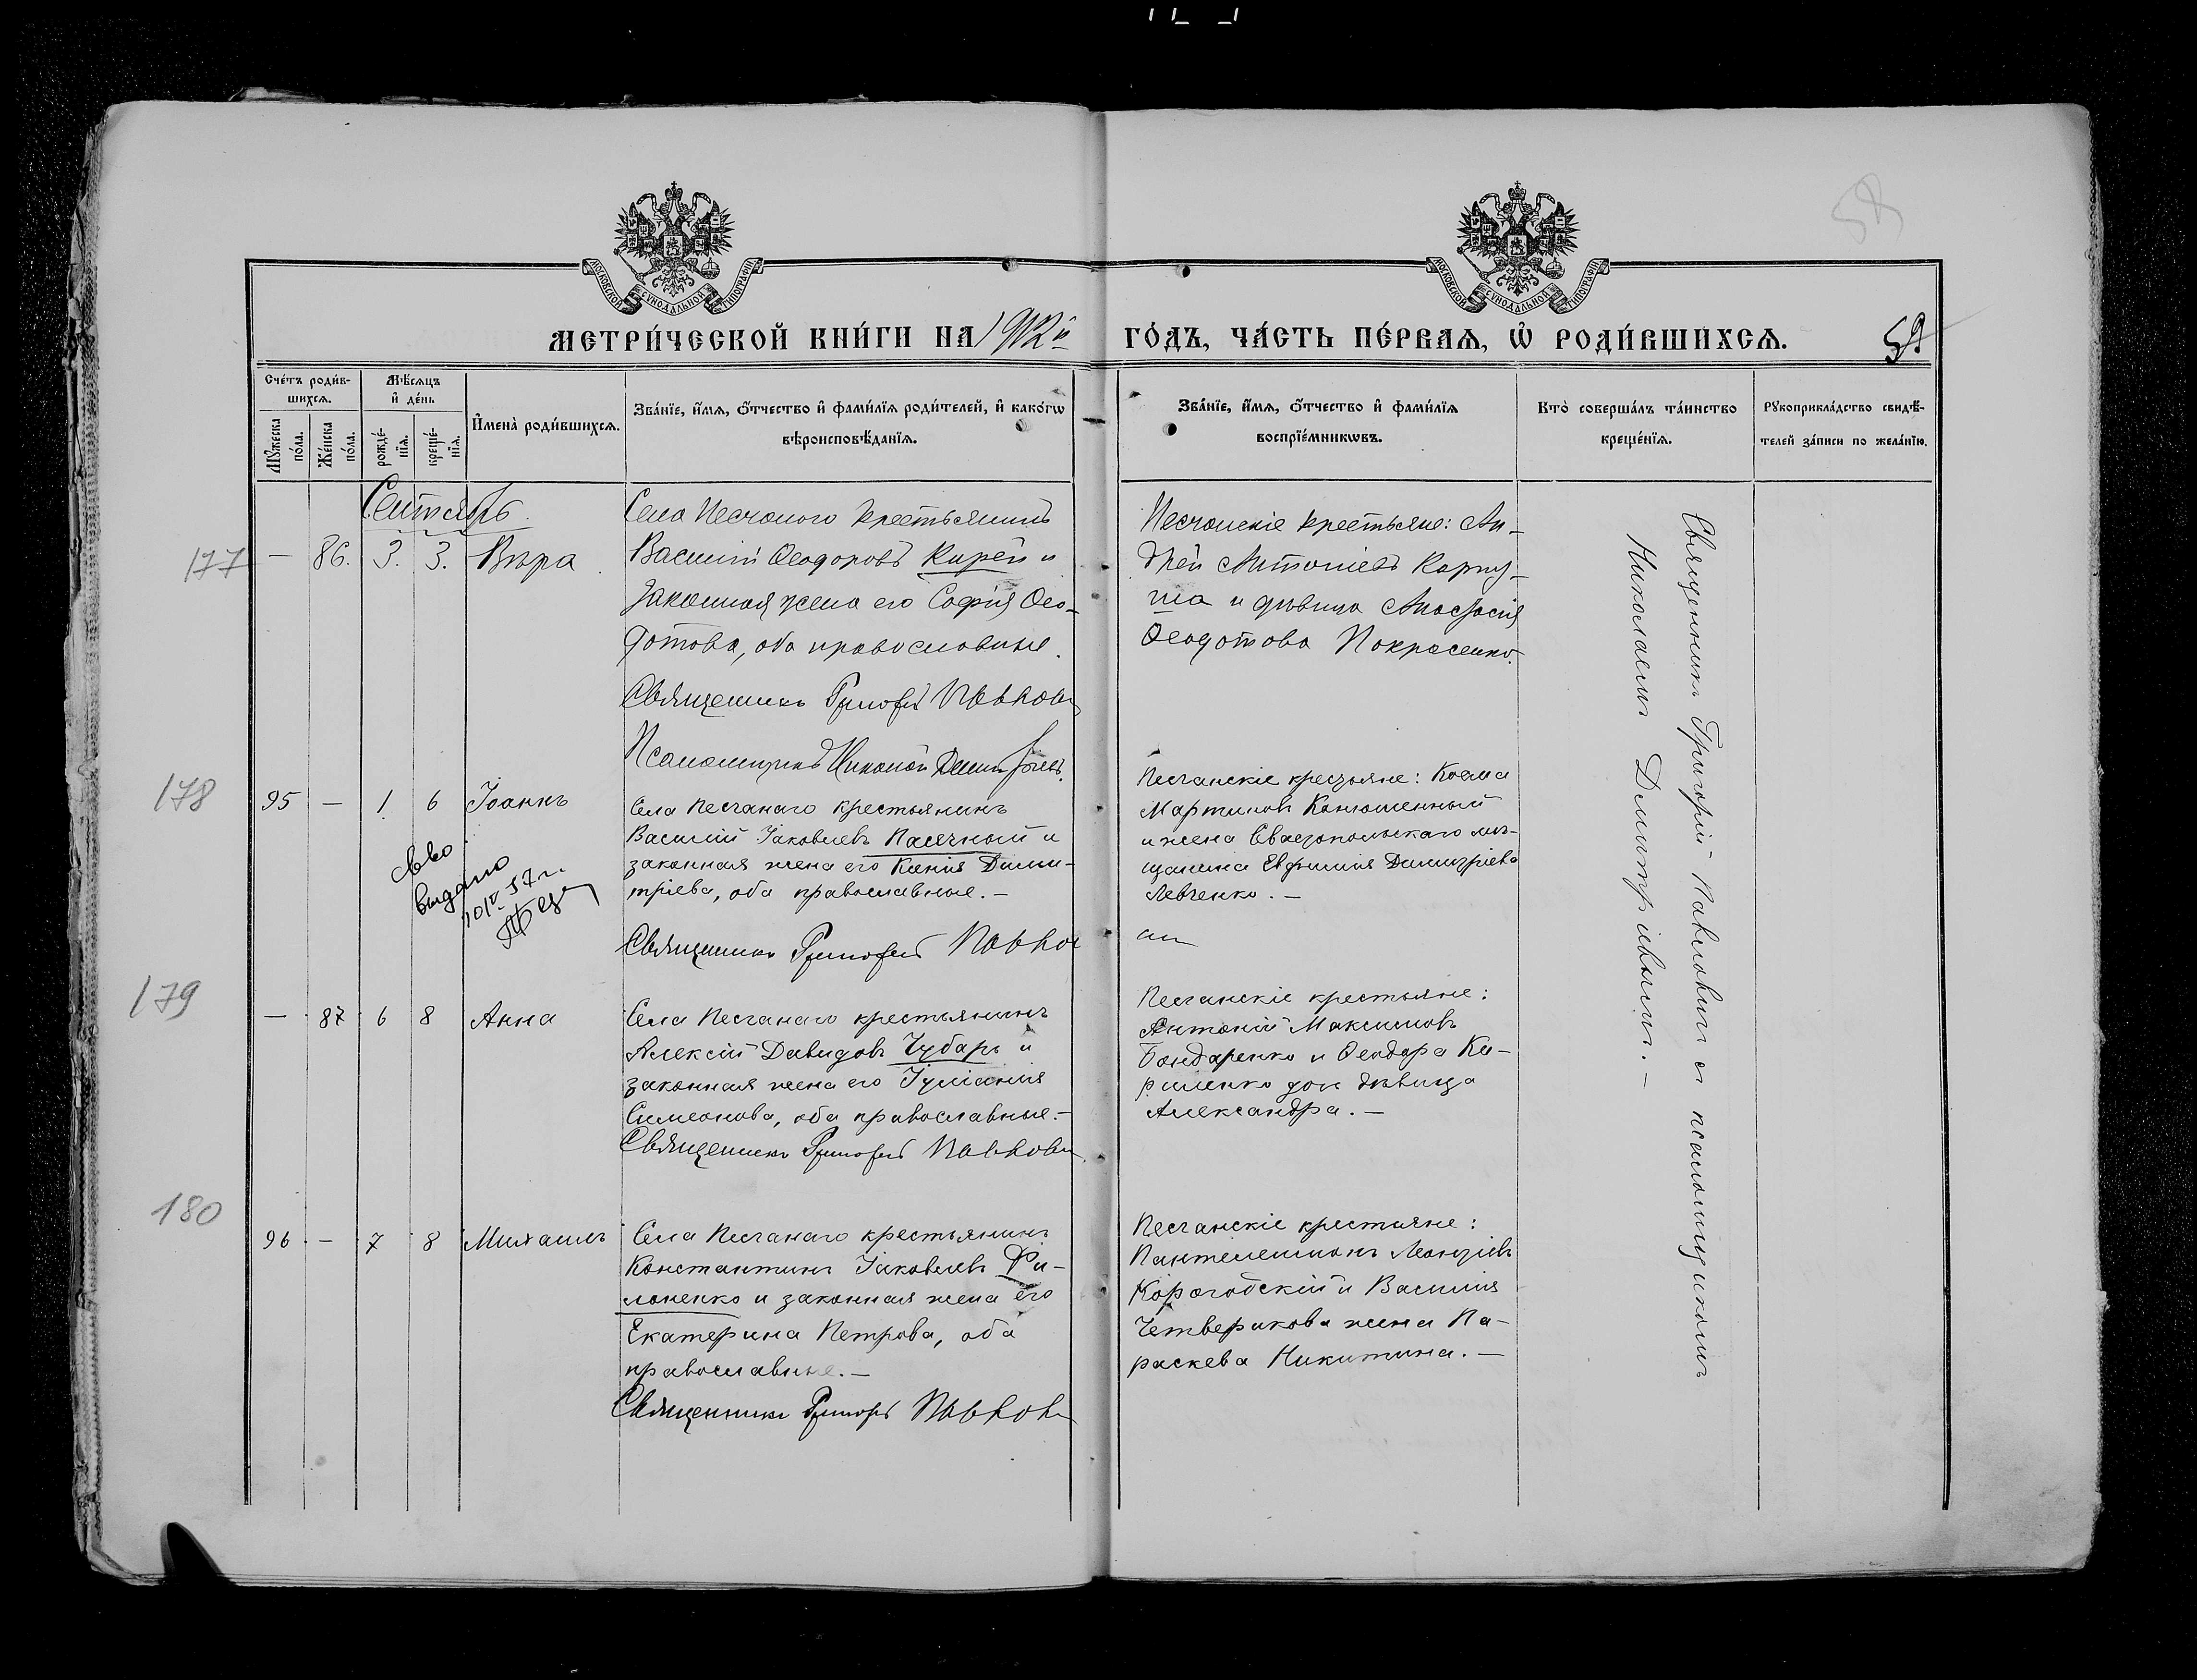 58
МОСКОВСКОЙ СѴНОДАЛЬНОЙ ТИПОГРАФІИ
МОСКОВСКОЙ СѴНОДАЛЬНОЙ ТИПОГРАФІИ
МЕТРИ́ЧЕСКОЙ КНИ́ГИ НА 1912й ГО́ДЪ, ЧА́СТЬ ПЕ́РВАѦ, Ѡ҆ РОДИ́ВШИХСѦ.
59
Сче́тъ роди́в-
шихсѧ.
Мꙋ́жеска по́ла.
Же́нска по́ла.
Мѣ́сѧцъ и҆ де́нь
рожде́-нїѧ.
креще́-нїѧ.
И҆мена̀ роди́вшихсѧ.
Зва́нїе, и҆́мѧ, ѻ҆́тчество и҆ фами́лїѧ роди́телей, и҆ како́гѡ
вѣроисповѣ́данїѧ.
Зва́нїе, и҆́мѧ, ѻ҆́тчество и҆ фами́лїѧ
воспрїе́мникѡвъ.
Кто̀ соверша́лъ та́инство
креще́нїѧ.
Рꙋкоприкла́дство свидѣ́-
телей за́писи по жела́нїю.
Сентябрь
177 — 86. 3. 3. Вѣра
Села Песчаного крестьянинъ
Василій Ѳеодоровъ Кирей и
законная жена его Софія Ѳео-
дотова, оба православные.
Священникъ Григорій Павлович
Псаломщикъ Николай Димитріевъ.
Песчанскіе крестьяне: Ан-
дрей Антоніевъ Карпу-
ша и дѣвица Анастасія
Ѳеодотова Покрасенко.
178 95 — 1 6 Іоаннъ
св-во
выдано
10/V 37 г.
Села Песчанаго крестьянинъ
Василій Іаковлевъ Пасечный и
законная жена его Ксенія Дими-
тріева, оба православные. —
Священникъ Григорій Павлович
Песчанскіе крестьяне: Косма
Мартиновъ Конюшенный
и жена Севастопольскаго мѣ-
щанина Евфимія Димитріева
Левченко. —
179 — 87 6 8 Анна
Села Песчанаго крестьянинъ
Алексій Давидовъ Чубарь и
законная жена его Іуліанія
Симеонова, оба православные. —
Священникъ Григорій Павлович
Песчанскіе крестьяне:
Антоній Максимовъ
Бондаренко и Ѳеодора Ки-
риленко дочь дѣвица
Александра. —
180 96 — 7 8 Михаилъ
Села Песчанаго крестьянинъ
Константинъ Іаковлевъ Фи-
лоненко и законная жена его
Екатерина Петрова, оба
православные. —
Священникъ Григорій Павлович
Песчанскіе крестьяне:
Пантелеимонъ Леонтіевъ
Корогодскій и Василія
Четверикова жена Па-
раскева Никитина. —
Священникъ Григорій Павловичъ съ псаломщикомъ
Николаемъ Димитріевымъ. —